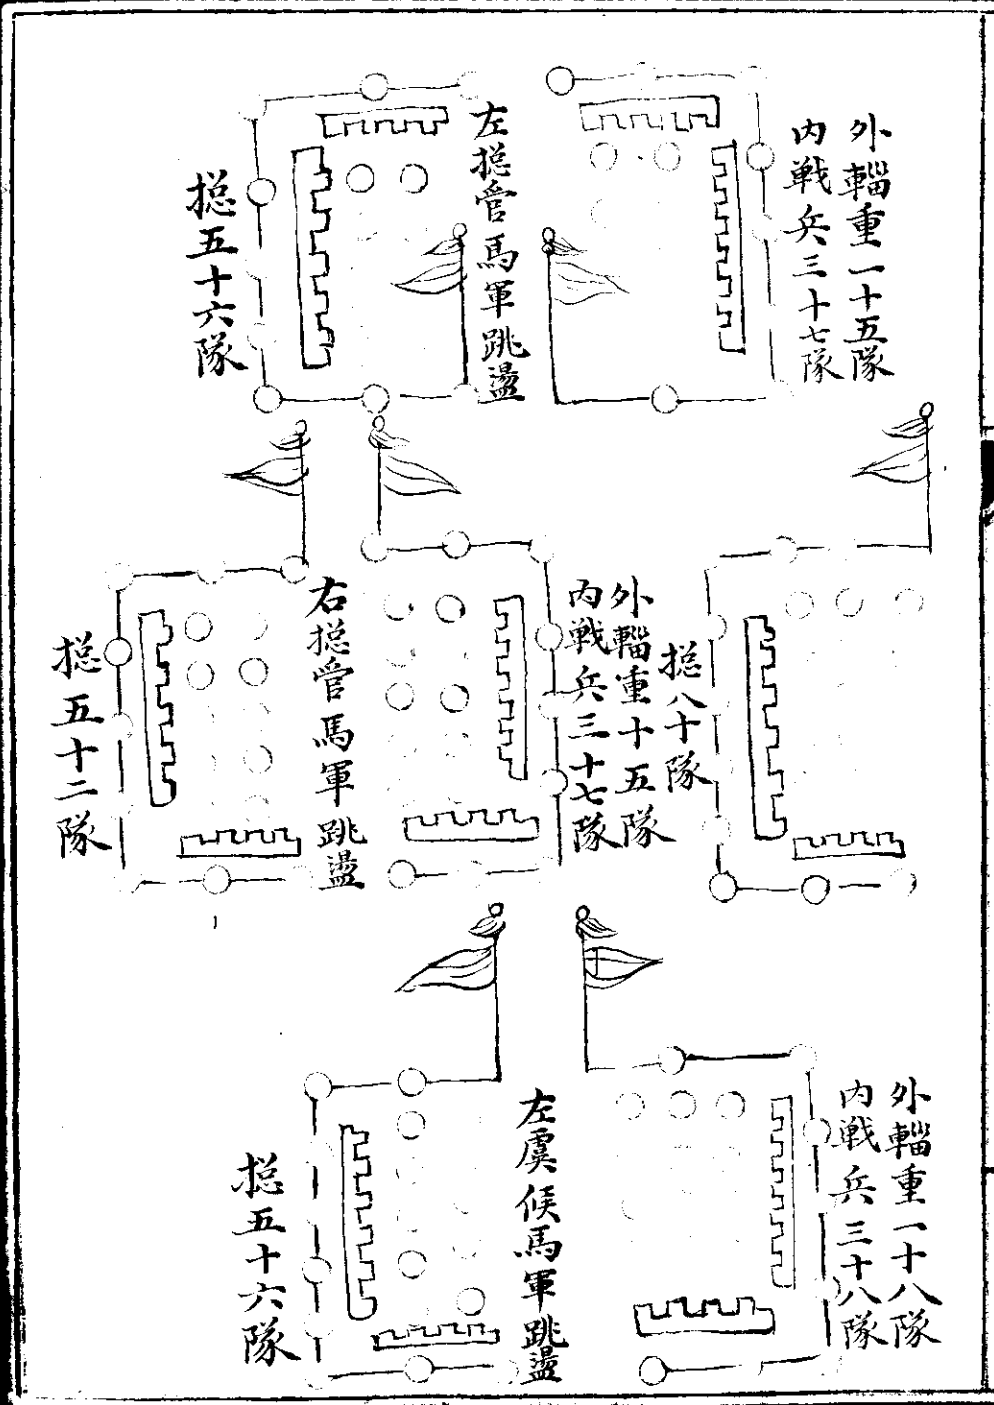 外輜重一十五隊
內戰兵三十七隊
左摠管馬軍跳盪
摠五十六隊
摠八十隊
外輜重十五隊
內戰兵三十七隊
右摠管馬軍跳盪
摠五十二隊
外輜重一十八隊
內戰兵三十八隊
左虞候馬軍跳盪
摠五十六隊